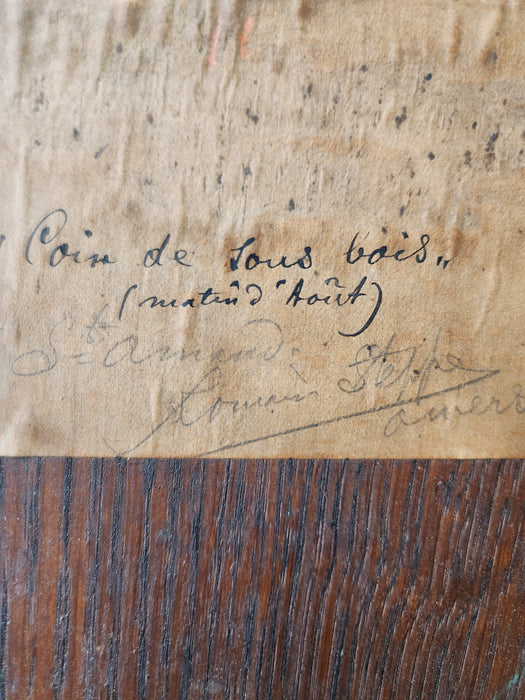 " Coin de sous bois „
(matin d'Août)
St Amand.
Romain Steppe